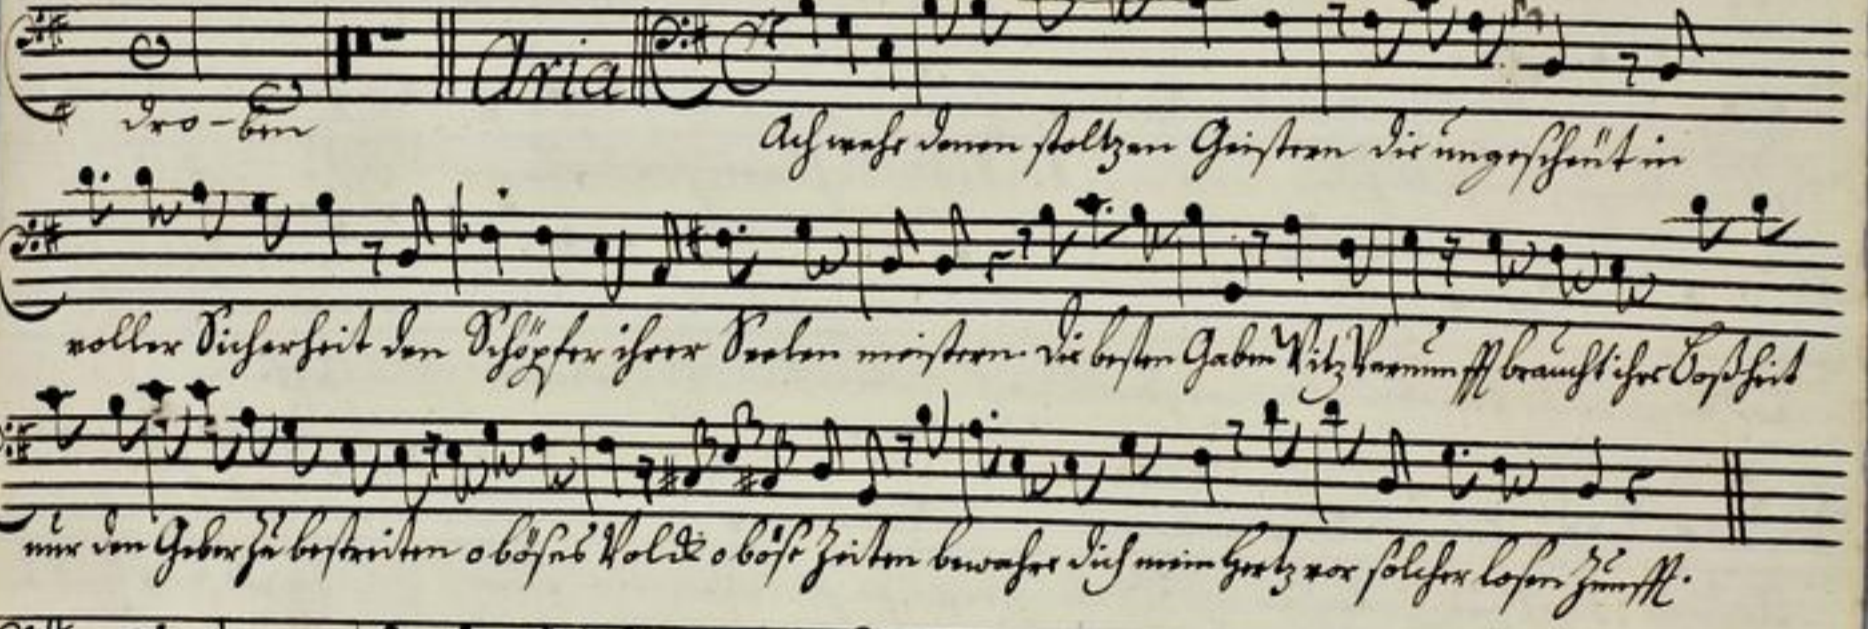 Aria
dro-ben Ach wehe denen stoltzen Geistern die ungescheüt in
voller Sicherheit den Schöpfer ihrer Seelen meistern. die besten Gaben Witz Vernunfft braucht ihre Boßheit
nur den Geber zu bestreiten o böses Volck o böse Zeiten bewahre dich mein Hertz vor solcher losen Zunfft.